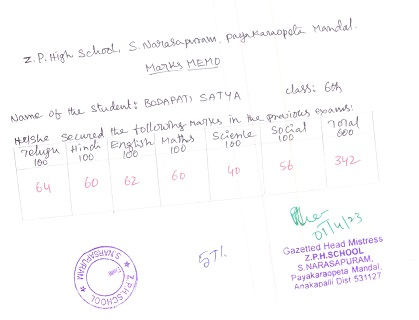 Z.P. High School, S. Narasapuram, Payakaraopeta Mandal.
Marks MEMO
Name of the Student: BODAPATI SATYA class: 6th
He/She Secured the following Marks in the previous exams:
Telugu 100 Hindi 100 English 100 Maths 100 Science 100 Social 100 Total 600
64 60 62 60 40 56 342
57%
01/4/23
Gazetted Head Mistress
Z.P.H.SCHOOL
S.NARASAPURAM,
Payakaraopeta Mandal,
Anakapalli Dist 531127
Z.P.H. SCHOOL
S. NARSAPURAM